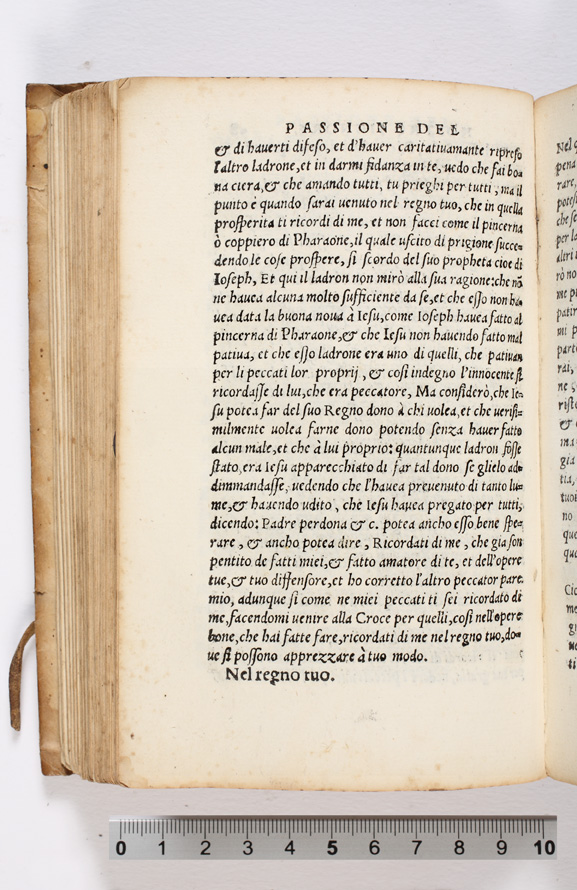 PASSIONE DEL
& di hauerti difeso, et d'hauer caritatiuamante ripreso
l'altro ladrone, et in darmi fidanza in te, uedo che fai bo⸗
na ciera, & che amando tutti, tu prieghi per tutti, ma il
punto è quando sarai uenuto nel regno tuo, che in quella
prosperita ti ricordi di me, et non facci come il pincerna
ò coppiero di Pharaone, il quale uscito di prigione succe⸗
dendole cose prospere, si scordo del suo propheta cioe di
Ioseph, Et qui il ladron non mirò alla sua ragione: che nō
ne hauea alcuna molto sufficiente da se, et che esso non ha
uea data la buona noua à Iesu, come Ioseph hauea fatto al
pincerna di Pharaone, & che Iesu non hauendo fatto mal
patiua, et che esso ladrone era uno di quelli, che patiuan
per li peccati lor proprij, & cosi indegno l'innocente si
ricordasse di lui, che era peccatore, Ma considerò, che Ie⸗
su potea far del suo Regno dono à chi uolea, et che uerisi⸗
milmente uolea farne dono potendo senza hauer fatto
alcun male, et che à lui proprio: quantunque ladron fosse
stato, era Iesu apparecchiato di far tal dono se glielo ad⸗
dimmandasse, uedendo che l'hauea preuenuto di tanto lu⸗
me, & hauendo udito, che Iesu hauea pregato per tutti,
dicendo: Padre perdona & c. potea ancho esso bene spe⸗
rare, & ancho potea dire, Ricordati di me, che gia son
pentito de fatti miei, & fatto amatore di te, et dell'opere
tue, & tuo diffensore, et ho corretto l'altro peccator pare
mio, adunque si come ne miei peccati ti sei ricordato di
me, facendomi uenire alla Croce per quelli, cosi nell'opere
bone, che hai fatte fare, ricordati di me nel regno tuo, do⸗
ue si possono apprezzare à tuo modo.
Nel regno tuo.
0 1 2 3 4 5 6 7 8 9 10